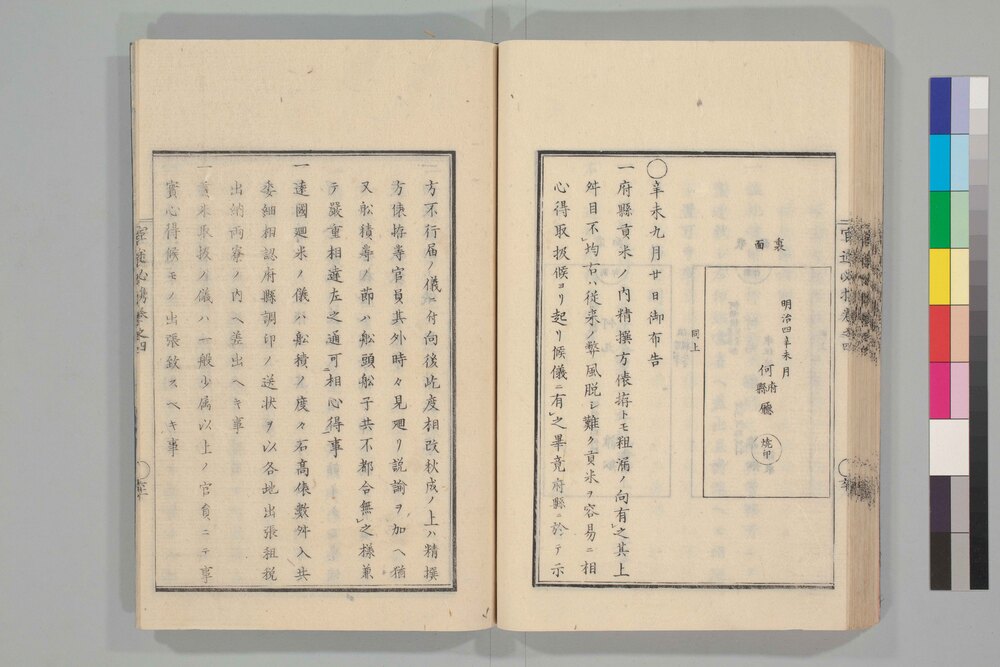 裏面
明治四辛未月
何府縣廳
焼印
同上
○辛未九月廿日御布告
一府縣貢米ノ内精撰方俵拵トモ粗漏ノ向有之其上
舛目不均右ハ従来ノ弊風脱シ難ク貢米ヲ容易ニ相
心得取扱候ヨリ起リ候儀ニ有之畢竟府縣ニ於テ示
方不行届ノ儀ニ付向後此度相改秋成ノ上ハ精撰
方俵拵等官員其外時々見廻リ説諭ヲ加ヘ猶
又舩積等ノ節ハ舩頭舩子共不都合無之様兼
テ嚴重相達左之通可相心得事
一遠國廻米ノ儀ハ舩積ノ度々石高俵數舛入共
委細相認府縣調印ノ送状ヲ以各地出張租税
出納両寮ノ内ヘ差出ヘキ事
一貢米取扱ノ儀ハ一般少属以上ノ官員ニテ事
實心得候モノ出張致スヘキ事